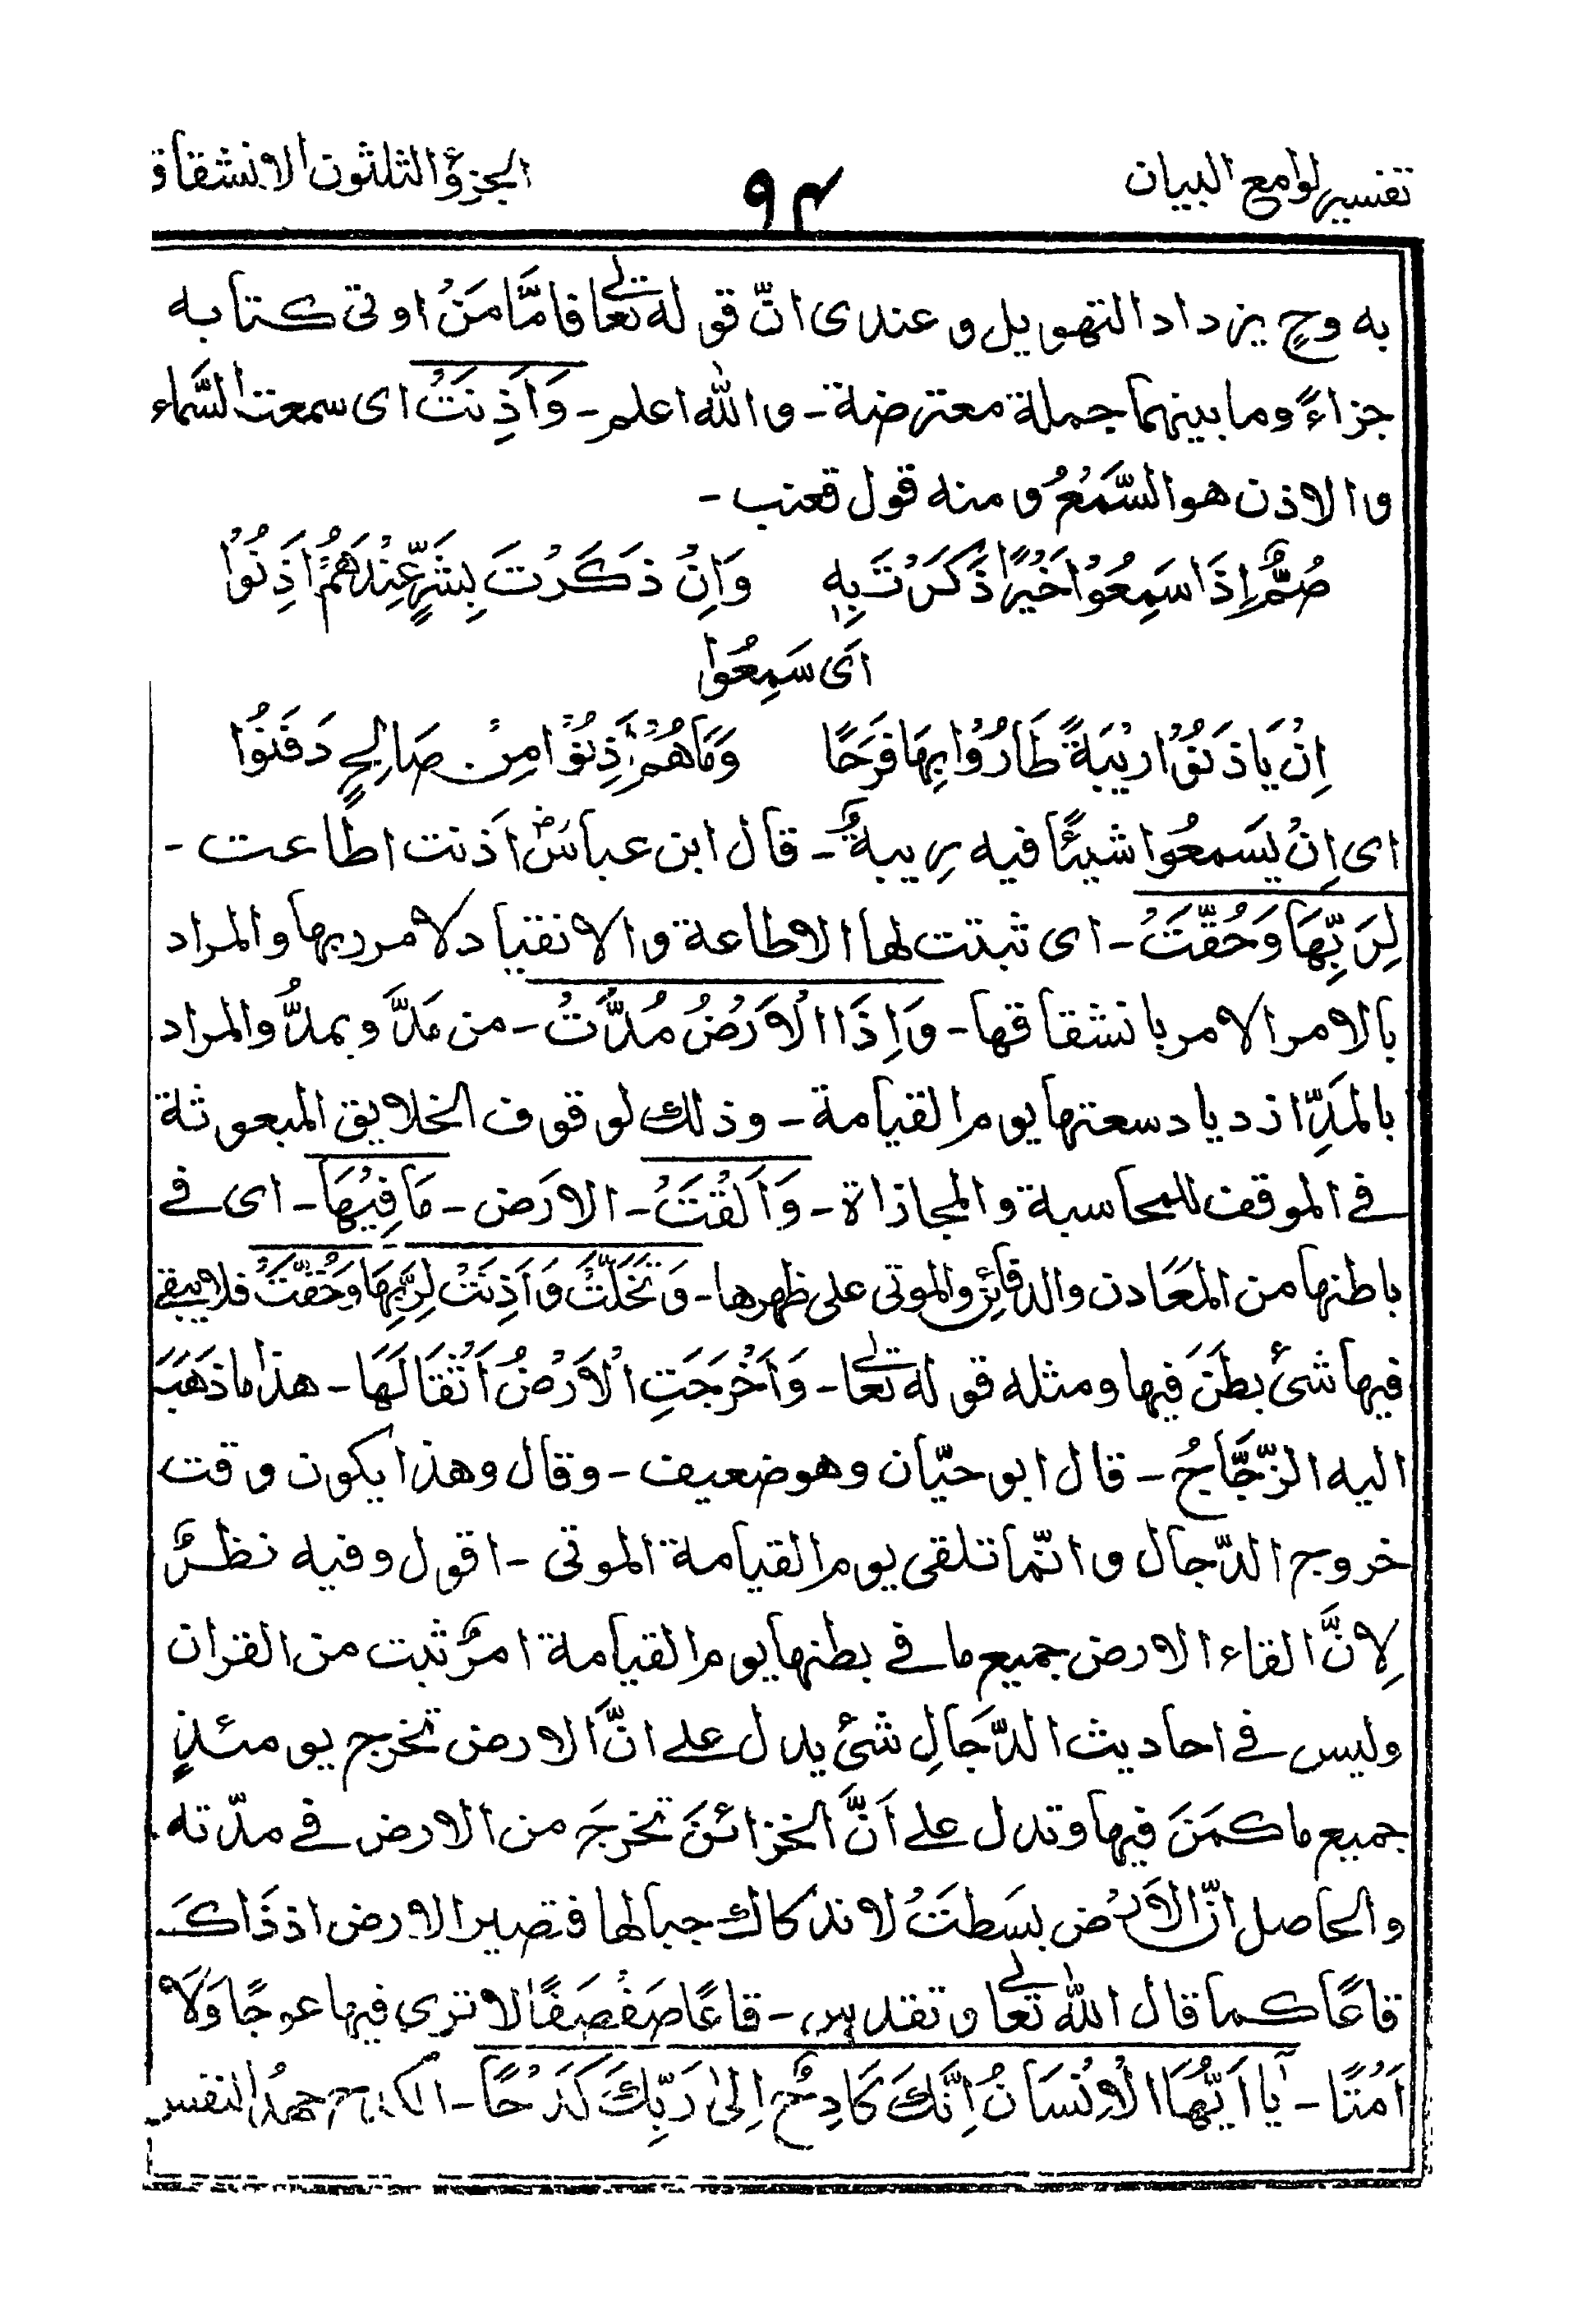 تفسير لوامع البيان
٩٤
الجزؤ الثلثون الانشقاق
به وحٍ يزداد التهويل و عندى انّ قوله تعالٰے فامَّا مَنْ اوتى كتابه
جزاءً وما بينهما جملة معترضة ـ والله اعلم ـ وَاَذِنَتْ اى سمعت السَّماء
والاذن هو السَّمْعُ ومنه قول قعنب ـ
صُمٌّ اِذَا سَمِعُوْا خَيْرًا ذَكَرْتَ بِهٖ وَاِنْ ذَكَرْتَ بِشَرٍّ عِنْدَهُمْ اَذِنُوْا
اَى سَمِعُوا
اِنْ يَاذَنُوْا رِيْبَةً طَارُوْا بِهَا فَرَحًا وَمَا هُمْ اَذِنُوْا مِنْ صَالِحٍ دَفَنُوْا
اى اِنْ يَسمعُوا شيئًا فيه رِيبةٌ ـ قال ابن عباسؓ اَذنت اطاعت ـ
لِرَبِّهَا وَحُقَّتْ ـ اى ثبتت لها الاطاعة والانقياد لامر ربها والمراد
بالامر الامر بانشقاقها ـ وَاِذَا الْاَرْضُ مُدَّتْ ـ من مَدَّ و يمدُّ والمراد
بالمَدِّ ازدياد سعتها يوم القيامة ـ وذلك لوقوف الخلايق المبعوثة
فے الموقف للمحاسبة والمجازاة ـ وَاَلْقَتْ ـ الارَض ـ مَا فِيْهَا ـ اى فے
باطنها من المَعَادن والدفائن والموتى على ظهرها ـ وَتَخَلَّتْ وَاَذِنَتْ لِرَبِّهَا وَحُقَّتْ فلا يبقے
فيها شئ بطَنَ فيها ومثله قوله تعالٰے ـ وَاَخْرَجَتِ الْاَرْضُ اَثْقَالَهَا ـ هذا ما ذهَبَ
اليه الزّجَّاجُ ـ قال ابو حيّان وهو ضعيف ـ وقال وهذا يكون وقت
خروج الدّجال وانّما تلقى يوم القيامة الموتى ـ اقول وفيه نظرٌ
لِانَّ القاء الارض جميع ما فے بطنها يوم القيامة امرٌ ثبت من القران
وليس فے احاديث الدّجَالِ شئ يدل علے انَّ الارض تخرج يومئذٍ
جميع ما كمَنَ فيها وتدل علے اَنَّ الخزائنَ تخرجَ من الارض فے مدّته
والحاصل انّ الاَرْض بسَطتْ لاندكاك جبالها فتصير الارض اذ ذَاكَ
قاعًا كما قال الله تعالٰے وتقدس ـ قاعًا صَفْصَفًا لا ترى فيها عوجًا وَلَا
اَمْتًا ـ يٰا اَيُّهَا الْاِنْسَانُ اِنَّكَ كَادِحٌ اِلىٰ رَبِّكَ كَدْحًا ـ الكدح جهدُ النفس